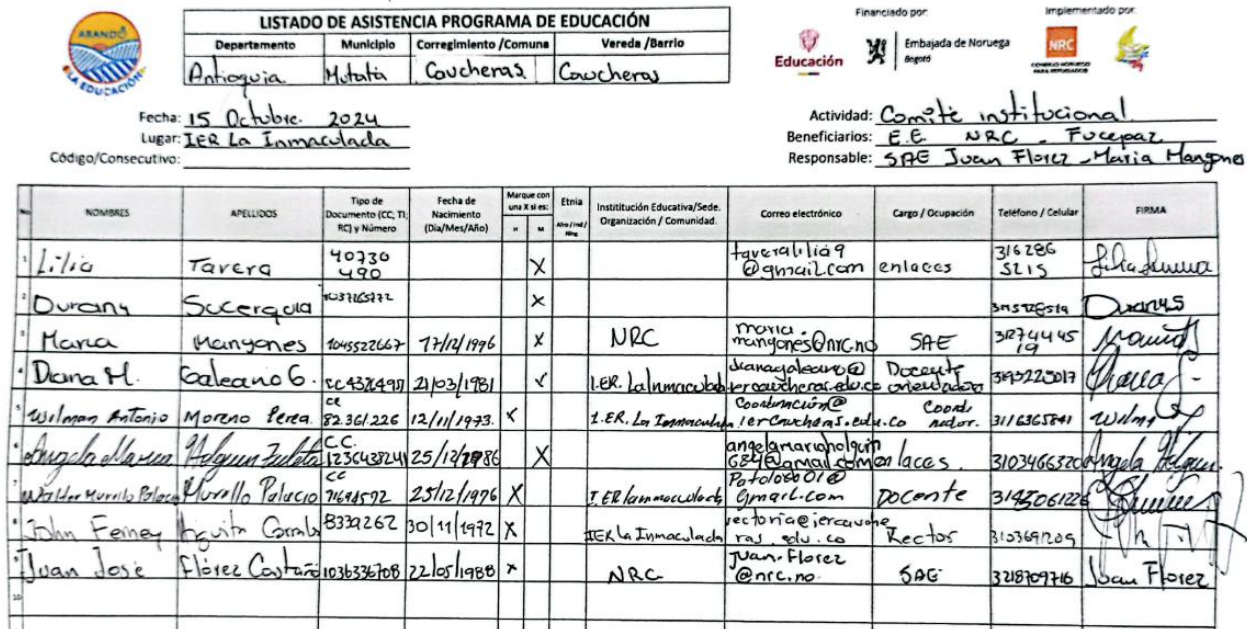 ARANDO
LA EDUCACIÓN
LISTADO DE ASISTENCIA PROGRAMA DE EDUCACIÓN
Departamento Municipio Corregimiento /Comuna Vereda /Barrio
Antioquia Mutatá Caucheras Caucheras
Financiado por:
Educación
Embajada de Noruega
Bogotá
Implementado por:
NRC
CONSEJO NORUEGO
PARA REFUGIADOS
Fecha: 15 Octubre. 2024
Lugar: IER La Inmaculada
Código/Consecutivo:
Actividad: Comité institucional
Beneficiarios: E.E. NRC - Fucepaz
Responsable: SAE Juan Florez - Maria Mangones
No. NOMBRES APELLIDOS Tipo de Documento (CC, TI, RC) y Número Fecha de Nacimiento (Día/Mes/Año) Marque con una X si es: H M Etnia Afro / Ind / Ning Instititución Educativa/Sede. Organización / Comunidad. Correo electrónico Cargo / Ocupación Teléfono / Celular FIRMA
1 Lilia Tavera 40730 490 X taveralilia9 @gmail.com enlaces 316286 5215
2 Durany Sucerquia X Duranys
3 Maria Mangones 1045522667 17/12/1996 X NRC maria. mangones@nrc.no SAE 31274445 19
4 Diana M. Galeano G. 21/03/1981 I.ER. La Inmaculada Docente orientadora
5 Wilman Antonio Moreno Perea. cc 82.361.226 12/11/1973. X I.ER. La Inmaculada Coordinación@ iercaucheras.edu.co Coordi nador. 3116365841 Wilm
6 Angela Maria Holguin Zuleta C.C. 1236438241 25/12/1986 X angelamariaholguin 684@gmail.com enlaces. 3103466320 Angela Holguin
7 Walter Murillo Palacio Murillo Palacio cc 25/12/1976 X I.ER Inmaculada gmail.com Docente
8 John Ferney 8339262 30/11/1972 X IER La Inmaculada rectoria@iercauche ras.edu.co Rector 3103691209
9 Juan José Flórez Castaño 1036336708 22/05/1988 X NRC Juan.Florez @nrc.no. SAE 3218709716 Juan Florez
10